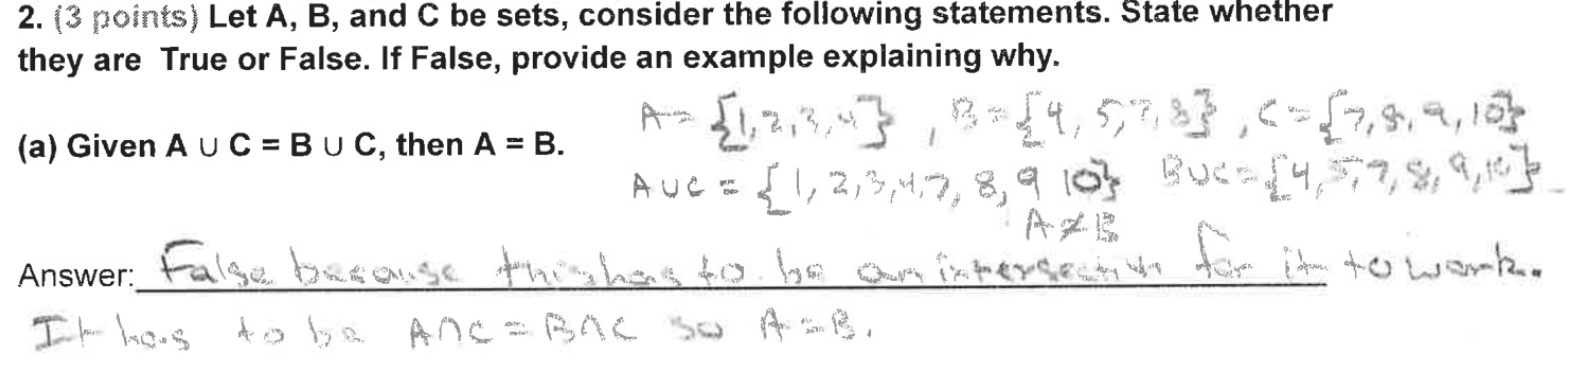 2. (3 points) Let A, B, and C be sets, consider the following statements. State whether
they are True or False. If False, provide an example explaining why.
A = {1,2,3,4}, B = {4,5,7,8}, C = {7,8,9,10}
(a) Given A ∪ C = B ∪ C, then A = B.
A∪C = {1,2,3,4,7,8,9 10} B∪C = {4,5,7,8,9,10}
A≠B
Answer: False because this has to be an intersection for it to work.
It has to be A∩C = B∩C so A=B.